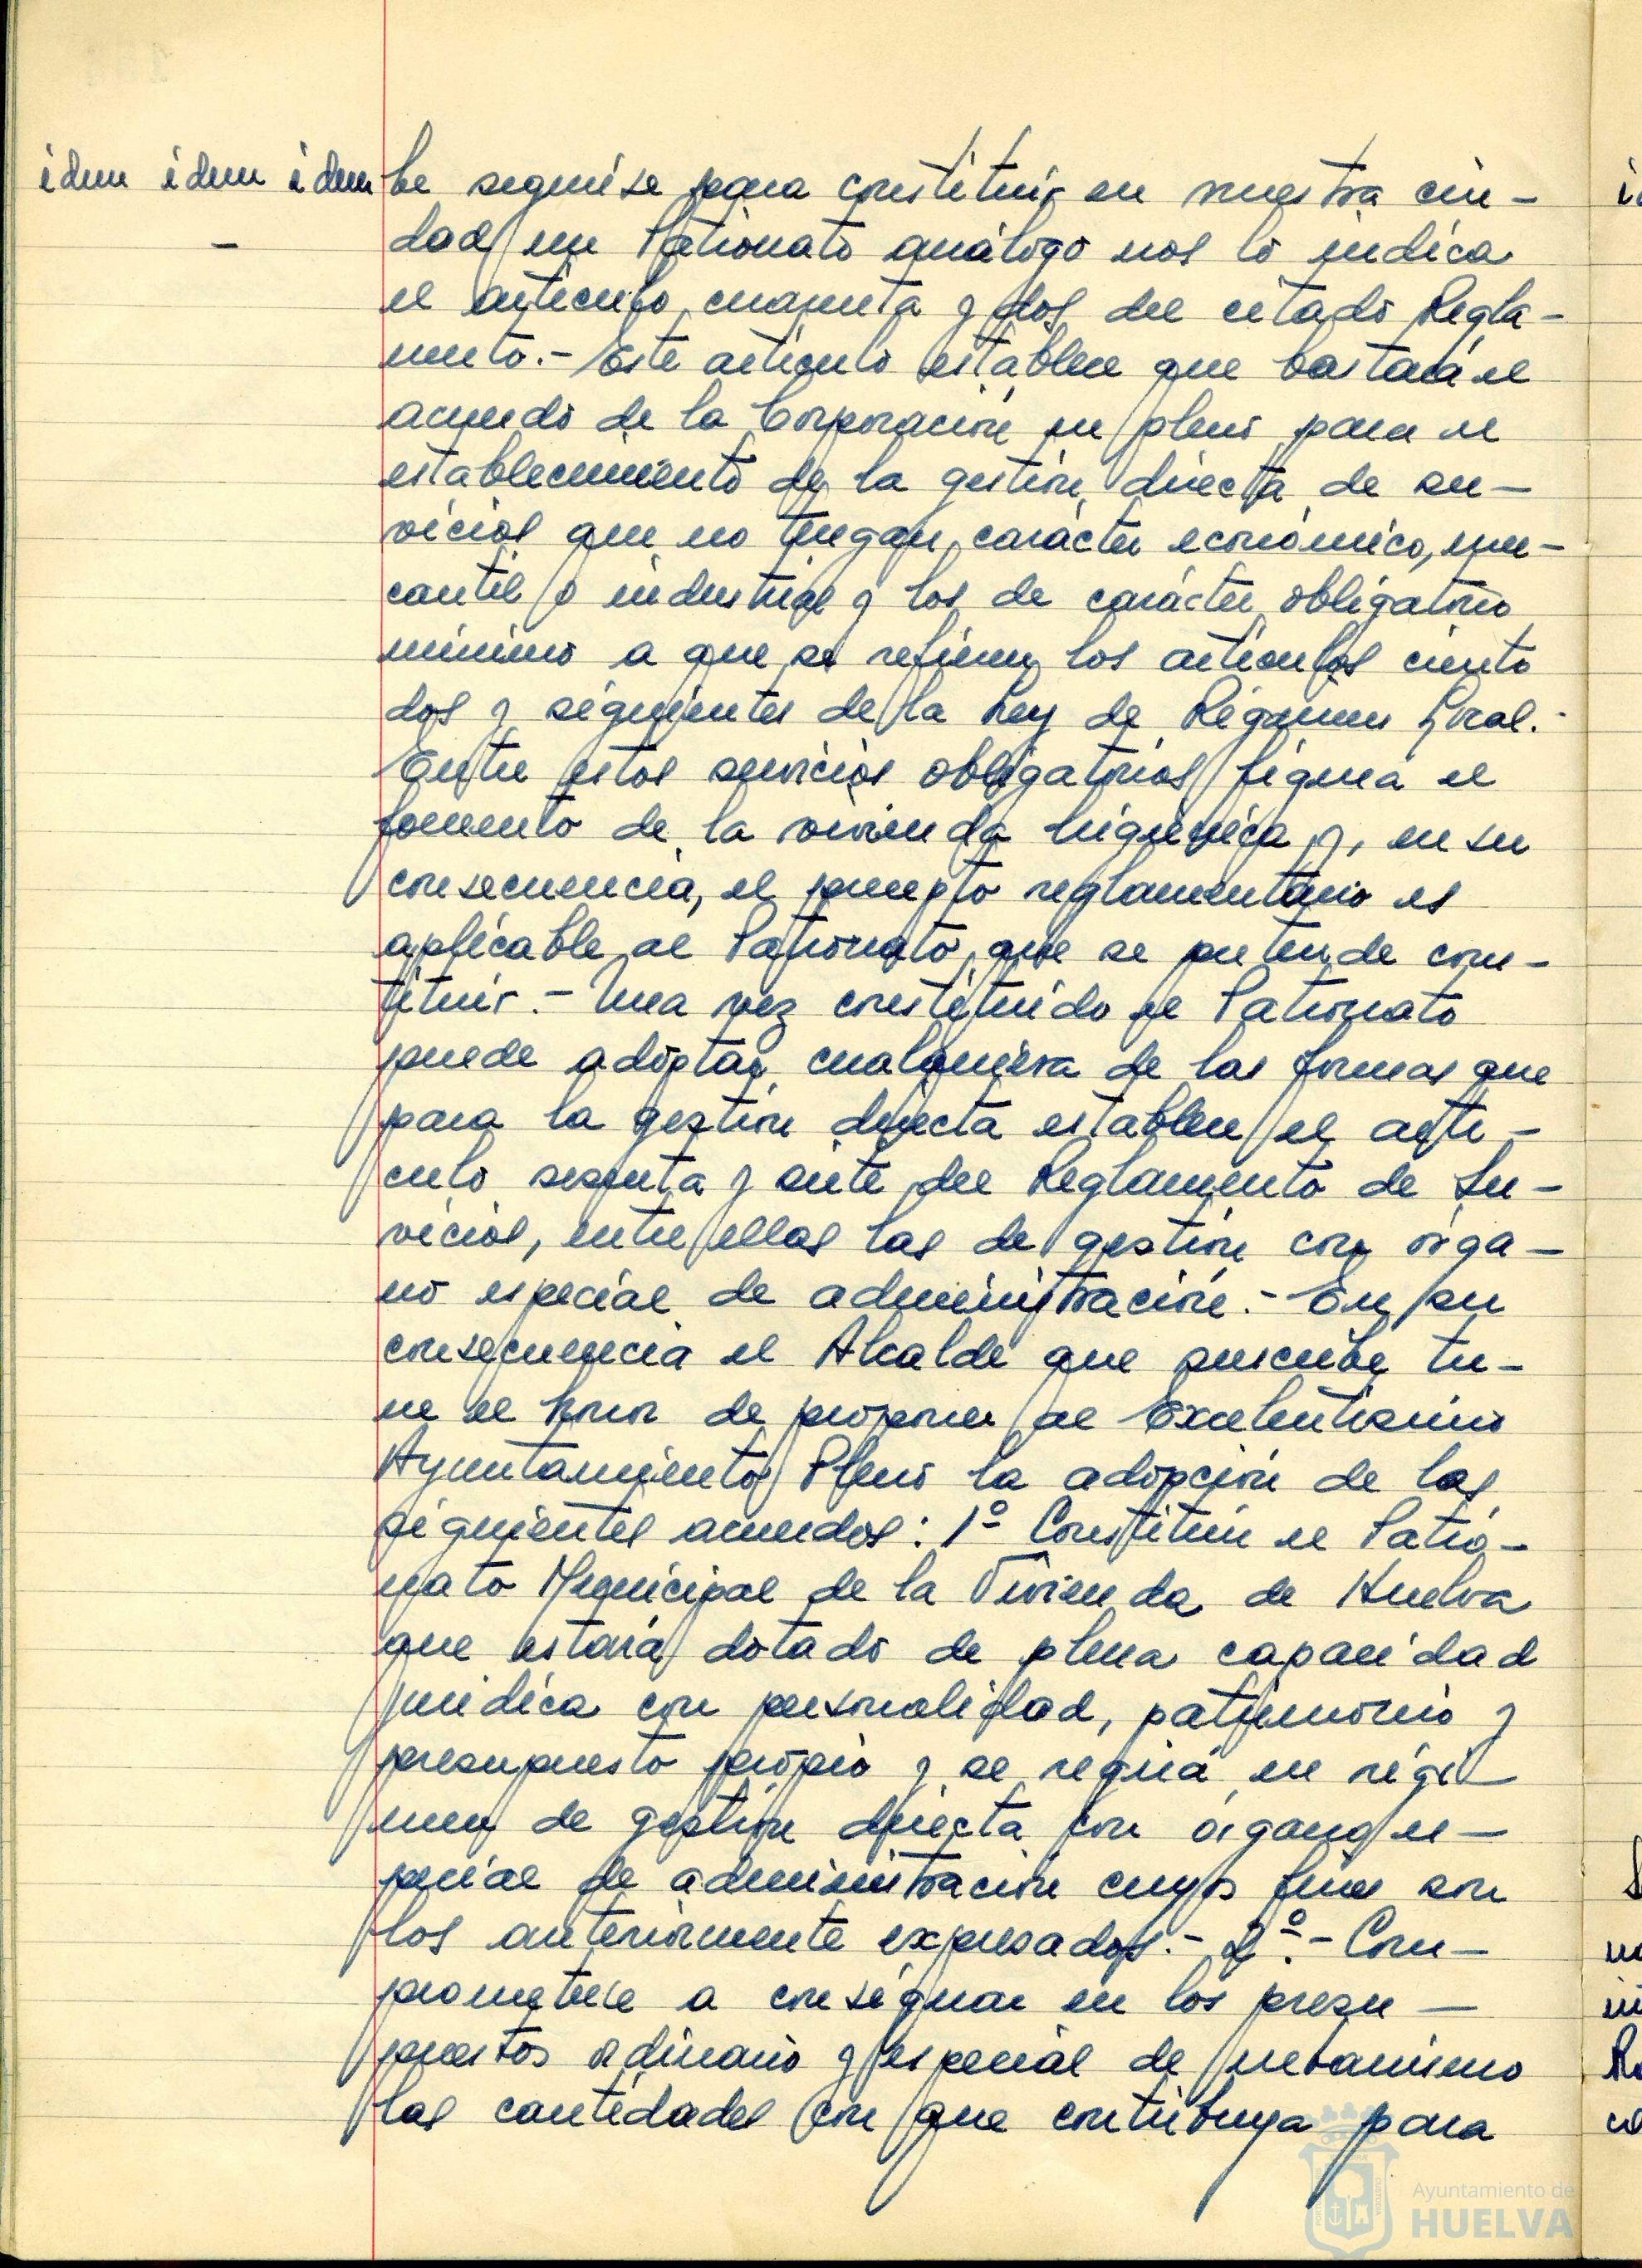 idem idem idem
be seguirse para constituir en nuestra ciu-
dad un Patronato análogo nos lo indica
el artículo cuarenta y dos del citado Regla-
mento.- Este artículo establece que bastará el
acuerdo de la Corporación en pleno para el
establecimiento de la gestión directa de ser-
vicios que no tengan carácter económico, mer-
cantil o industrial y los de carácter obligatorio
mínimo a que se refieren los artículos ciento
dos y siguientes de la Ley de Régimen Local.-
Entre estos servicios obligatorios figura el
fomento de la vivienda higiénica y, en su
consecuencia, el precepto reglamentario es
aplicable al Patronato que se pretende cons-
tituir.- Una vez constituido el Patronato
puede adoptar cualquiera de las formas que
para la gestión directa establece el artí-
culo sesenta y siete del Reglamento de Ser-
vicios, entre ellas las de gestión con órga-
no especial de administración.- En su
consecuencia el Alcalde que suscribe tie-
ne el honor de proponer al Excelentísimo
Ayuntamiento Pleno la adopción de los
siguientes acuerdos: 1º Constituir el Patro-
nato Municipal de la Vivienda de Huelva
que estará dotado de plena capacidad
jurídica con personalidad, patrimonio y
presupuesto propio y se regirá en régi-
men de gestión directa con órgano es-
pecial de administración cuyos fines son
los anteriormente expresados.- 2º.- Com-
prometerse a consignar en los presu-
puestos ordinario y especial de urbanismo
las cantidades con que contribuya para
Ayuntamiento de
HUELVA